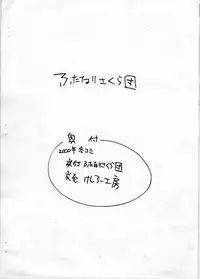 ふたなりさくら団
奥付
2000年冬コミ
発行 ふたなりさくら団
発売 けしろー工房